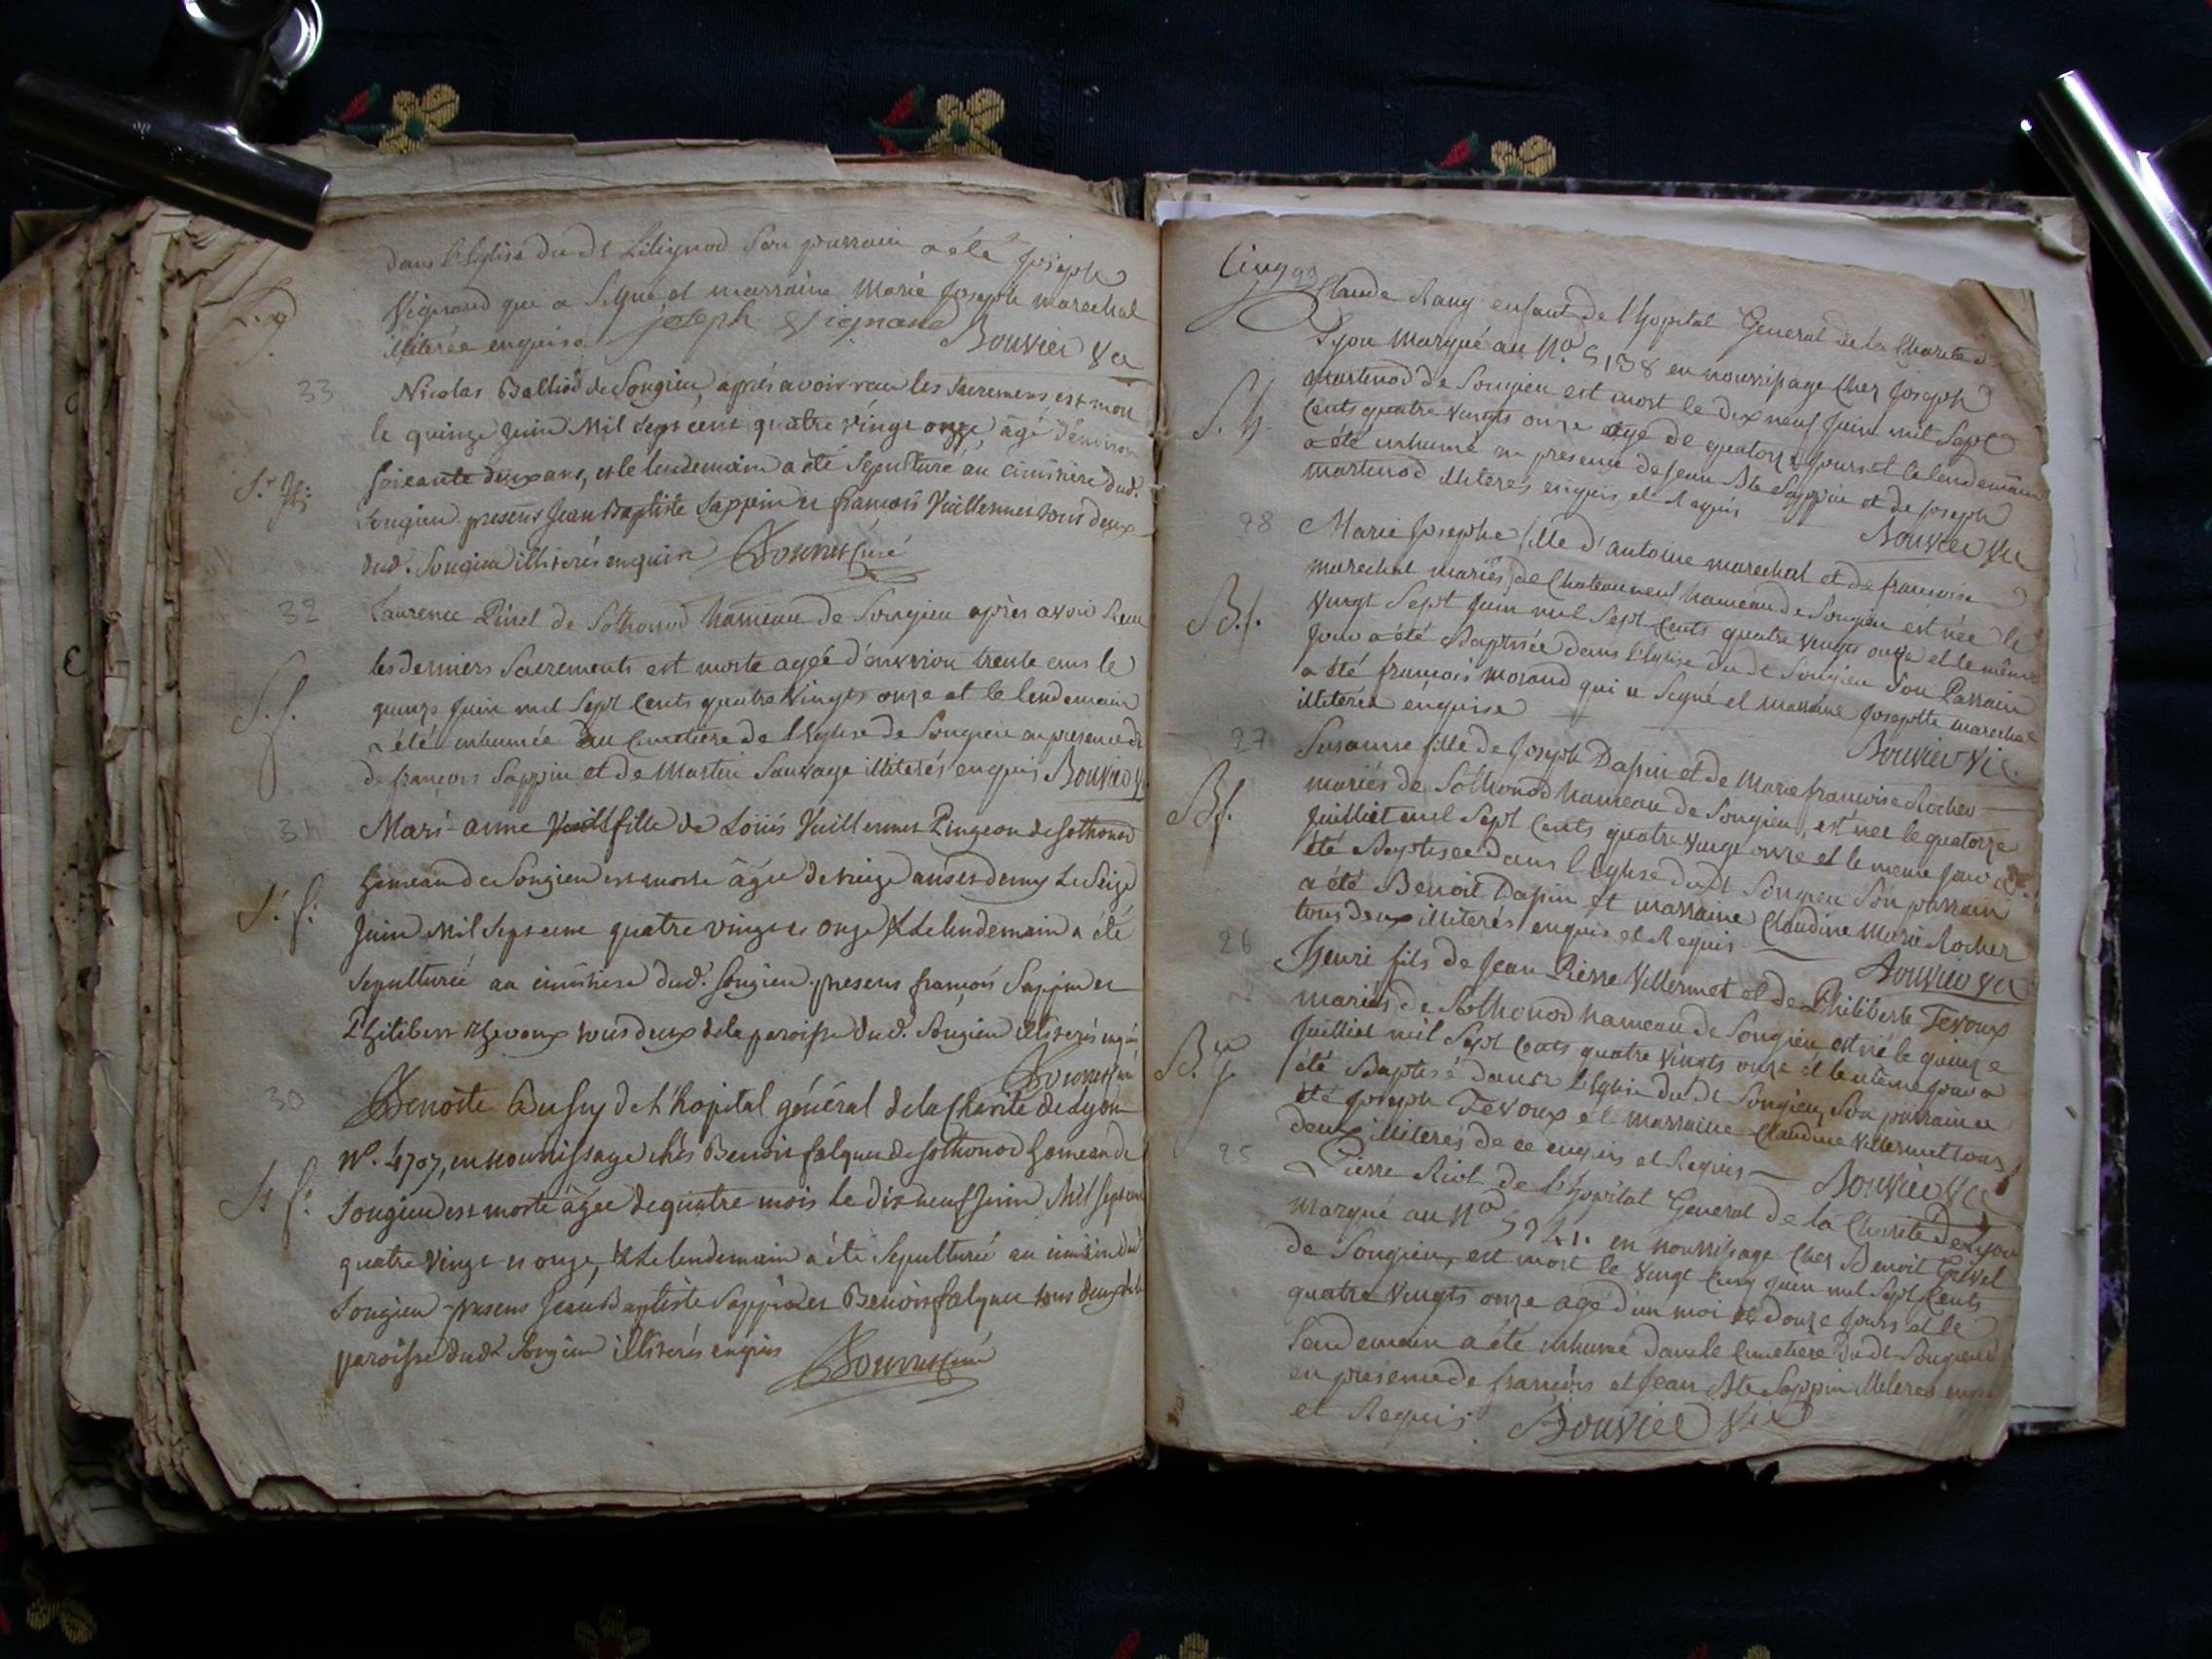 dans l'Eglise du dt Lilignod Son parrain a été Joseph
Vignand qui a Signé et marraine Marie Joseph marechal
illiterée enquise joseph Vignand Bouvier
33
Nicolas Balliod de Songieu, aprés avoir reçu les Sacremens est mort
le quinze Juin Mil Sept cent quatre vingt onze, âgé d'environ
Soixante deux ans, et le lendemain a été Sépulturé au cimitiere dud.
Songieu presens Jean Baptiste Sappin et françois Vuillermet tous deux
dud. Songieu illiterés enquis curé
32
Laurence Pinet de Sothonod hameau de Songieu après avoir Reçu
S. f.
les derniers Sacrements est morte agée d'environ trente ans le
quinze Juin mil Sept Cents quatre Vingts onze et le lendemain
a été inhumée au Cimetiere de l'Eglise de Songieu en presence de
de françois Sappin et de Martin Sauvage illiterés enquis Bouvier
31
Mari-anne fille de Loüis Vuillermet Pingeon de Sothonod
S. f.
hameau de Songieu est morte âgée de treize ans et demy Le Seize
Juin Mil Sept cent quatre vingt et onze et le lendemain a été
Sepulturée au cimitiere dud. Songieu. presens françois Sappin et
Philibert Thevoux tous deux de la paroisse dud. Songieu illiterés enquis
30
Benoite de l'hopital général de la Charité de Lyon
S. f.
N°. 4707, en nourrissage chés Benoit falquet de Sothonod hameau de
Songieu est morte âgée de quatre mois le dix neuf Juin Mil Sept cent
quatre vingt et onze, et le lendemain a été Sepulturée au cimitiere dud
Songieu presens Jean Baptiste Sappin et Benoit falquet tous deux de la
paroisse dudt Songieu illiterés enquis curé
Cinq
29
Claude Rang enfant de l'hopital General de la Charité de
Lyon Marqué au No. 5138 en nourrissage Chez Joseph
Martinod de Songieu est mort le dix neuf Juin mil Sept
Cents quatre vingts onze agé de quatorze Jours et le lendemain
a été inhumé en presence de Jean Bte Sappin et de Joseph
martinod illiteres enquis et Requis Bouvier Vic
28
Marie Josephe fille d'antoine marechal et de francoise
marechal mariés de Chateauneuf hameau de Songieu est née le
B. f.
Vingt Sept Juin mil Sept Cents quatre Vingts onze et le même
Jour a été Baptisée dans l'Eglise du dt Songieu Son Parrain
a été françois morand qui a Signé et marraine Josephte marechal
illiterée enquise Bouvier Vic.
27
Susanne fille de Joseph Dapin et de Marie francoise Rocher
mariés de Sothonod hameau de Songieu, est née le quatorze
B. f.
Juilliet mil Sept Cents quatre Vingt onze et le meme Jour a
été Baptisée dans l'Eglise du dt Songieu Son parrain
a été Benoit Dapin et marraine Claudine Marie Rocher
tous deux illiterés enquis et Requis Bouvier
26
Henri fils de Jean Pierre Villermet et de Philiberte Tevoux
mariés de Sothonod hameau de Songieu est né le quinze
Juilliet mil Sept Cents quatre Vingts onze et le même Jour a
été Baptisé dans l'Eglise du dt Songieu, Son parrain a
été Joseph Tevoux et marraine Claudine Villermet tous
deux illiterés de ce enquis et Requis Bouvier
25
Pierre Riol de l'hopital General de la Charité De Lyon
Marqué au No en nourrissage Chez Benoit Grivel
de Songieu, est mort le Vingt Cinq Juin mil Sept Cents
quatre Vingts onze agé d'un moi et douze Jours et le
lendemain a été inhumé dans le Cimetiere du dt Songieu
en presence de françois et Jean Bte Sappin illiteres enquis
et Requis Bouvier Vic